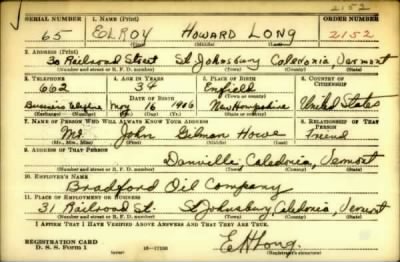 2152
SERIAL NUMBER 1. NAME (Print) ORDER NUMBER
65 ELROY HOWARD LONG 2152
(First) (Middle) (Last)
2. ADDRESS (Print)
30 Railroad Street St Johnsbury Caledonia, Vermont
(Number and street or R. F. D. number) (Town) (County) (State)
3. TELEPHONE 4. AGE IN YEARS 5. PLACE OF BIRTH 6. COUNTRY OF CITIZENSHIP
662 34 Enfield
DATE OF BIRTH (Town or county)
Business Telephone Nov 16 1906 New Hampshire United States
(Exchange) (Number) (Mo.) (Day) (Yr.) (State or country)
7. NAME OF PERSON WHO WILL ALWAYS KNOW YOUR ADDRESS 8. RELATIONSHIP OF THAT PERSON
Mr. John Gilman Howe Friend
(Mr., Mrs., Miss) (First) (Middle) (Last)
9. ADDRESS OF THAT PERSON
Danville, Caledonia, Vermont
(Number and street or R. F. D. number) (Town) (County) (State)
10. EMPLOYER'S NAME
Bradford Oil Company
11. PLACE OF EMPLOYMENT OR BUSINESS
31 Railroad St. St Johnsbury, Caledonia, Vermont
(Number and street or R. F. D. number) (Town) (County) (State)
I AFFIRM THAT I HAVE VERIFIED ABOVE ANSWERS AND THAT THEY ARE TRUE.
REGISTRATION CARD
D. S. S. Form 1 (over) E H Long.
(Registrant's signature)